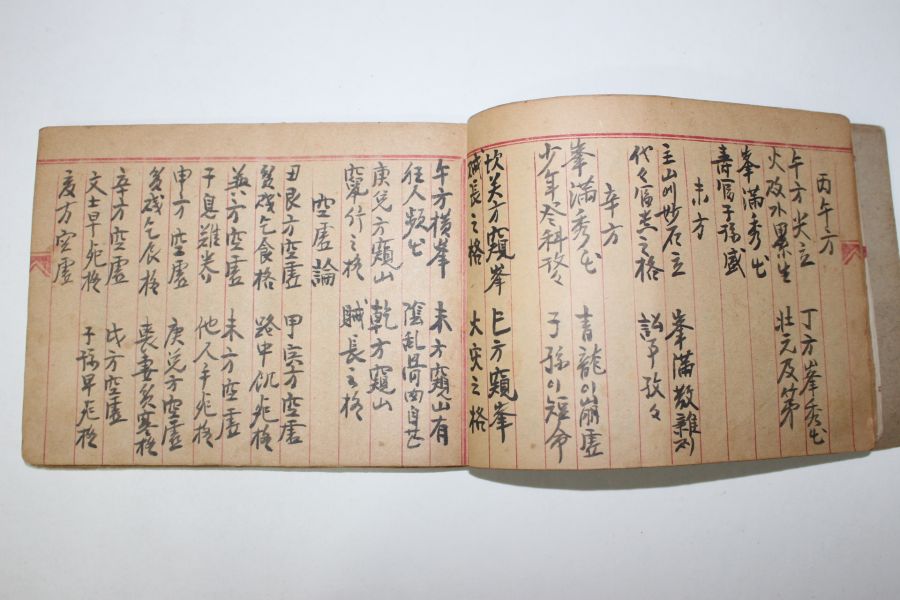 丙午方
午方尖立 丁方峯秀出
火及水累生 壯元及第
峯滿秀出
壽富子孫盛
未方
主山에妙石立 峯滿散雜
代々富貴之格 訟爭
辛方
峯滿秀出 靑龍이崩虛
少年登科 子孫이短命
坎癸方窺峯 巳方窺峯
賊長之格 火灾之格
午方橫峯 未方窺山有
狂人頻出 陰亂
庚兌方窺山 乾方窺山
竊行之格 賊長之格
空虛論
丑艮方空虛 甲寅方空虛
貧殘乞食格 路中飢死格
巽方空虛 未方空虛
子息難養 他人手死格
申方空虛 庚兌方空虛
貧殘乞食格 喪妻貧寒格
辛方空虛 戌方空虛
文士早死格 子孫早死格
亥方空虛